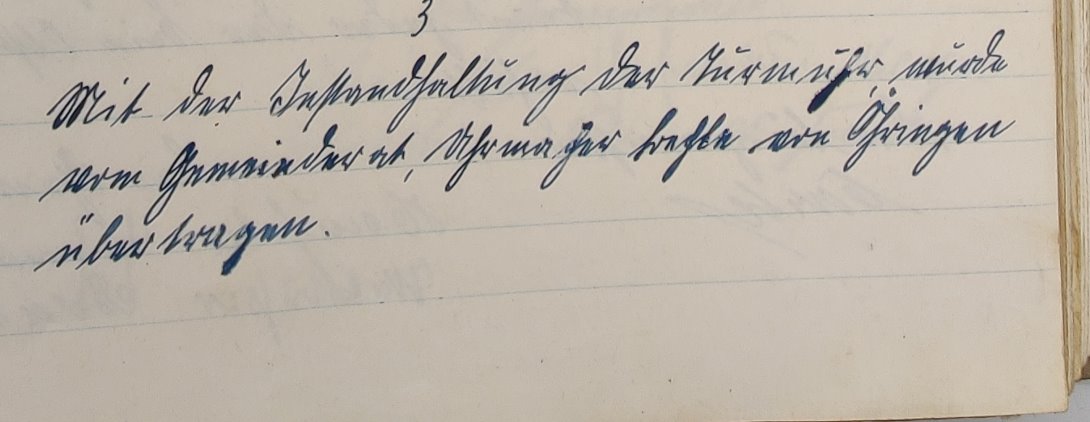 3
Mit der Instandhaltung der Turmuhr, wurde
vom Gemeinderat, Uhrmacher von Öhringen
übertragen.